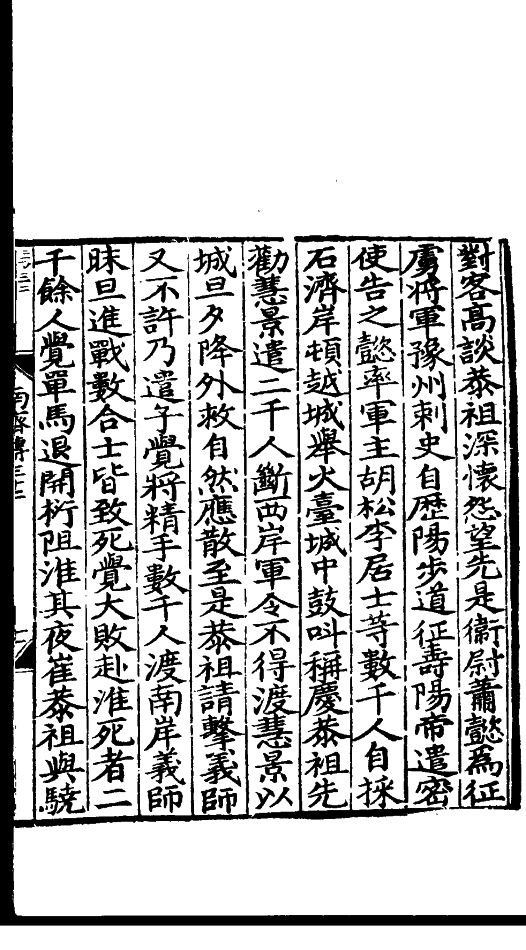 對客高談恭祖深懷怨望先是衞尉蕭懿爲征
虜將軍豫州刺史自歷陽步道征壽陽帝遣密
使告之懿率軍主胡松李居士等數千人自採
石濟岸頓越城舉火臺城中鼓叫稱慶恭祖先
勸慧景遣二千人斷西岸軍令不得渡慧景以
城旦夕降外救自然應散至是恭祖請擊義師
又不許乃遣子覺將精手數千人渡南岸義師
昧旦進戰數合士皆致死覺大敗赴淮死者二
千餘人覺單馬退開桁阻淮其夜崔恭祖與驍
南齊傳三十二